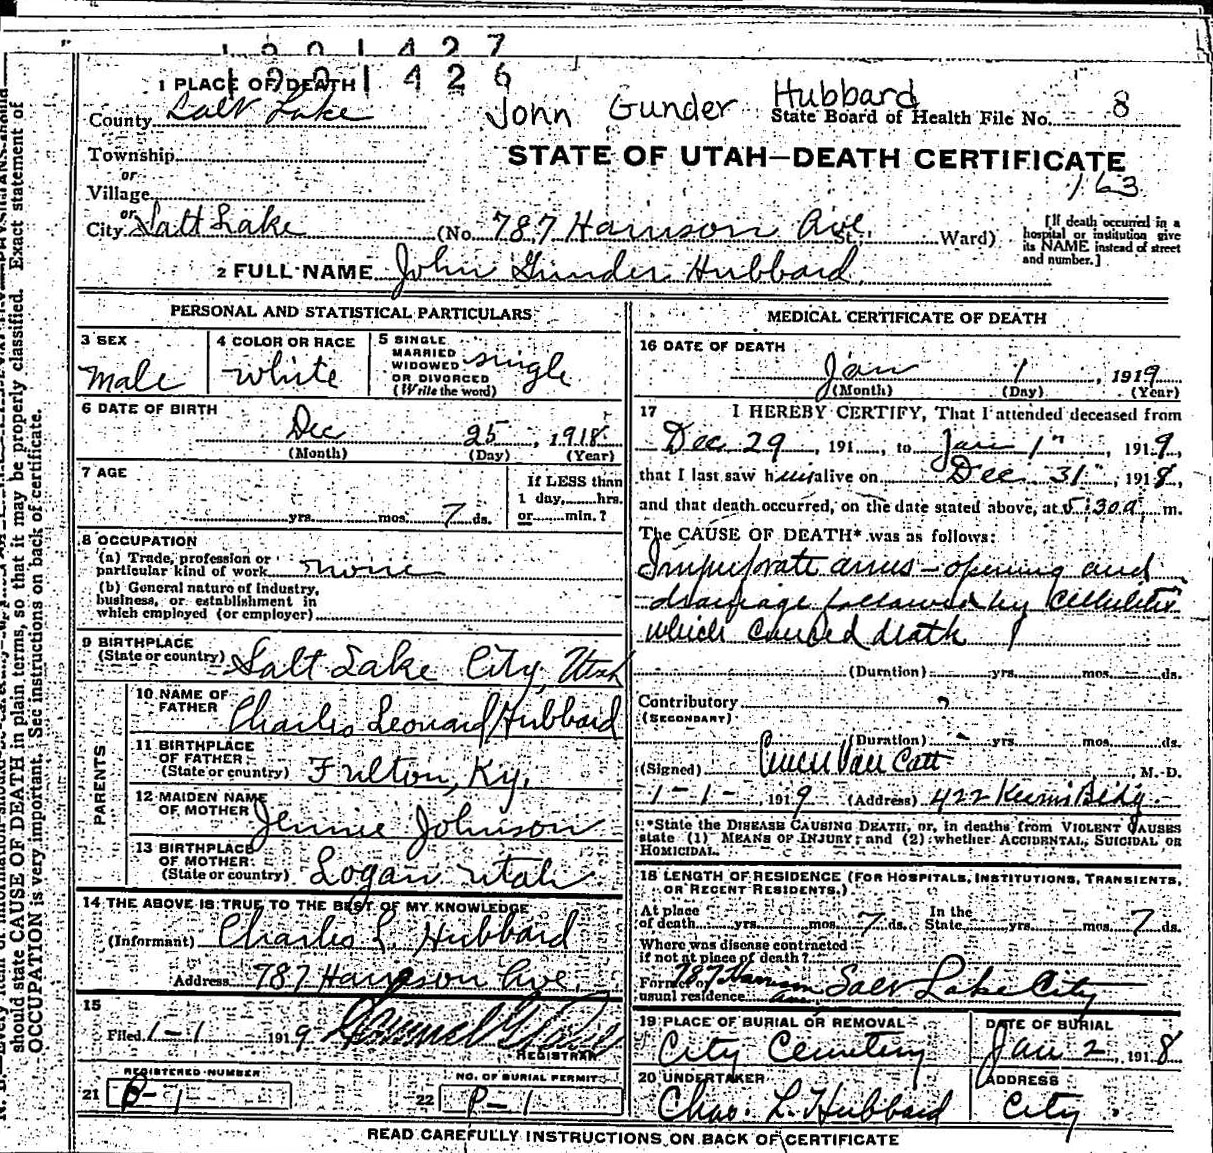 1901427
1901426
1 PLACE OF DEATH
John Gunder Hubbard
County Salt Lake
State Board of Health File No. 8
Township
or
STATE OF UTAH—DEATH CERTIFICATE
163
Village
or
City Salt Lake (No. 787 Harrison Ave. St. Ward)
[If death occurred in a
hospital or institution give
its NAME instead of street
and number.]
2 FULL NAME John Gunder Hubbard
PERSONAL AND STATISTICAL PARTICULARS
3 SEX
Male
4 COLOR OR RACE
White
5 SINGLE
MARRIED
WIDOWED
OR DIVORCED
(Write the word)
Single
6 DATE OF BIRTH
Dec 25, 1918
(Month) (Day) (Year)
7 AGE
yrs. mos. 7 ds.
If LESS than
1 day, hrs.
or min.?
8 OCCUPATION
(a) Trade, profession or
particular kind of work none
(b) General nature of industry,
business, or establishment in
which employed (or employer)
9 BIRTHPLACE
(State or country) Salt Lake City, Utah
PARENTS
10 NAME OF
FATHER Charles Leonard Hubbard
11 BIRTHPLACE
OF FATHER
(State or country) Fulton, Ky.
12 MAIDEN NAME
OF MOTHER Jennie Johnson
13 BIRTHPLACE
OF MOTHER
(State or country) Logan Utah
14 THE ABOVE IS TRUE TO THE BEST OF MY KNOWLEDGE
(Informant) Charles L. Hubbard
Address 787 Harrison Ave.
15
Filed 1-1 1919
REGISTRAR
REGISTERED NUMBER
21 P-1
NO. OF BURIAL PERMIT
22 P-1
MEDICAL CERTIFICATE OF DEATH
16 DATE OF DEATH
Jan 1, 1919
(Month) (Day) (Year)
17 I HEREBY CERTIFY, That I attended deceased from
Dec 29, 191 , to Jan 1", 1919,
that I last saw him alive on Dec 31", 1918,
and that death occurred, on the date stated above, at 5:30a m.
The CAUSE OF DEATH* was as follows:
Imperforate anus - opening and
drainage followed by cellulitis
which caused death
(Duration) yrs. mos. ds.
Contributory ?
(SECONDARY)
(Duration) - yrs. mos. ds.
(Signed) Van Cott, M. D.
1-1-, 1919 (Address) 422 Kearns Bldg.
*State the DISEASE CAUSING DEATH, or, in deaths from VIOLENT CAUSES
state (1) MEANS OF INJURY; and (2) whether ACCIDENTAL, SUICIDAL OR
HOMICIDAL.
18 LENGTH OF RESIDENCE (FOR HOSPITALS, INSTITUTIONS, TRANSIENTS,
OR RECENT RESIDENTS.)
At place
of death yrs. mos. 7 ds.
In the
State yrs. mos. 7 ds.
Where was disease contracted
if not at place of death?
Former or
usual residence 787 Harrison Ave. Salt Lake City
19 PLACE OF BURIAL OR REMOVAL
City Cemetery
DATE OF BURIAL
Jan 2, 1918
20 UNDERTAKER
Chas. L. Hubbard
ADDRESS
City.
READ CAREFULLY INSTRUCTIONS ON BACK OF CERTIFICATE
should state CAUSE OF DEATH in plain terms, so that it may be properly classified. Exact statement of
OCCUPATION is very important. See instructions on back of certificate.